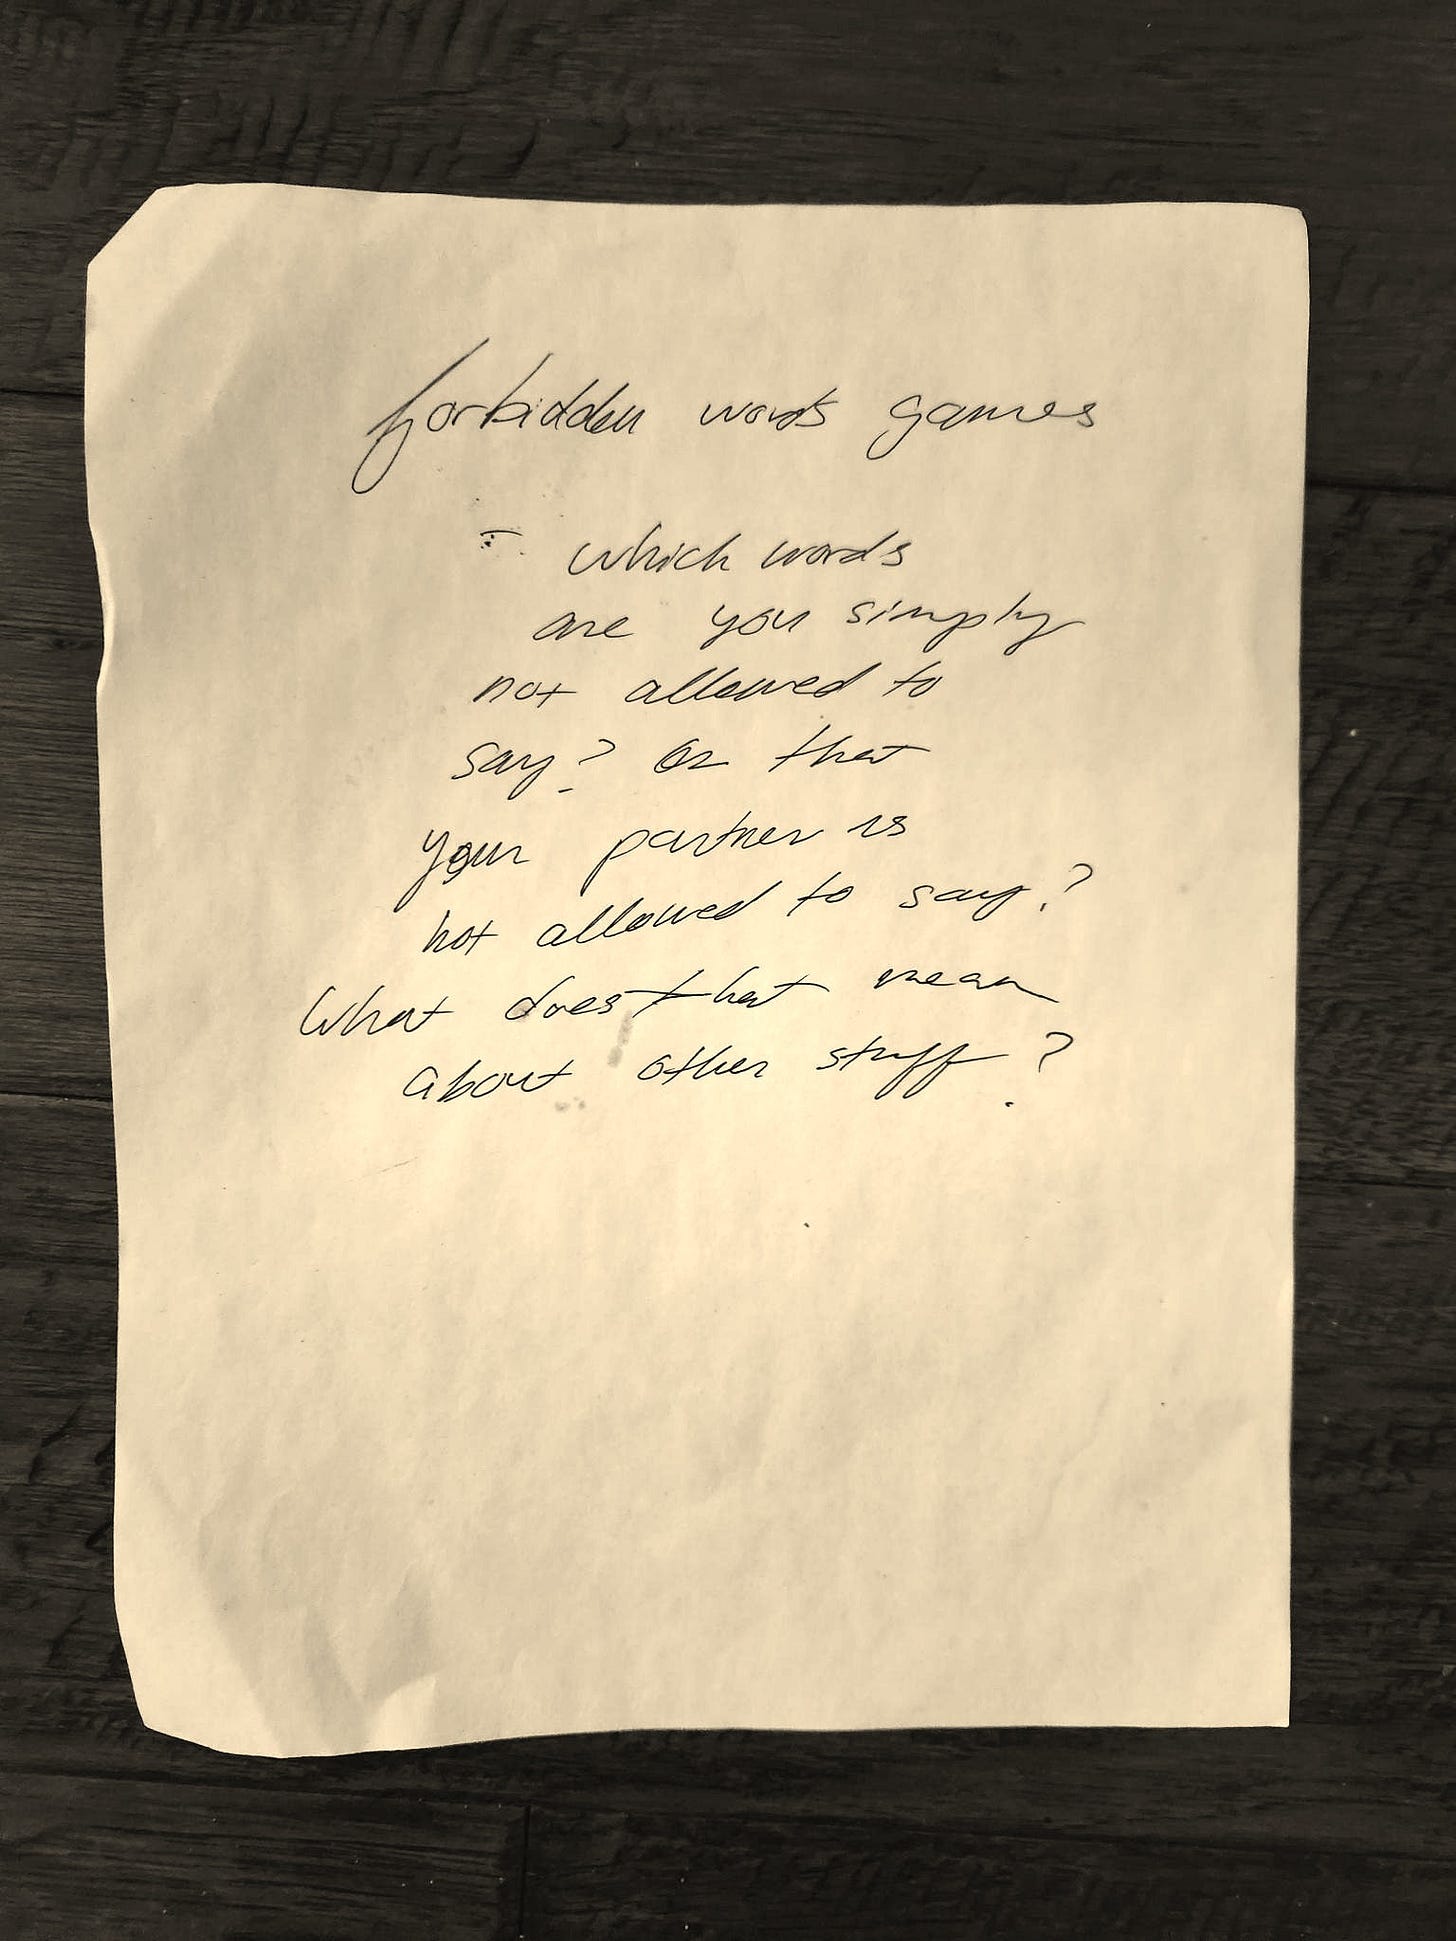 forbidden words games
- which words
are you simply
not allowed to
say? Or that
your partner is
not allowed to say?
What does that mean
about other stuff?